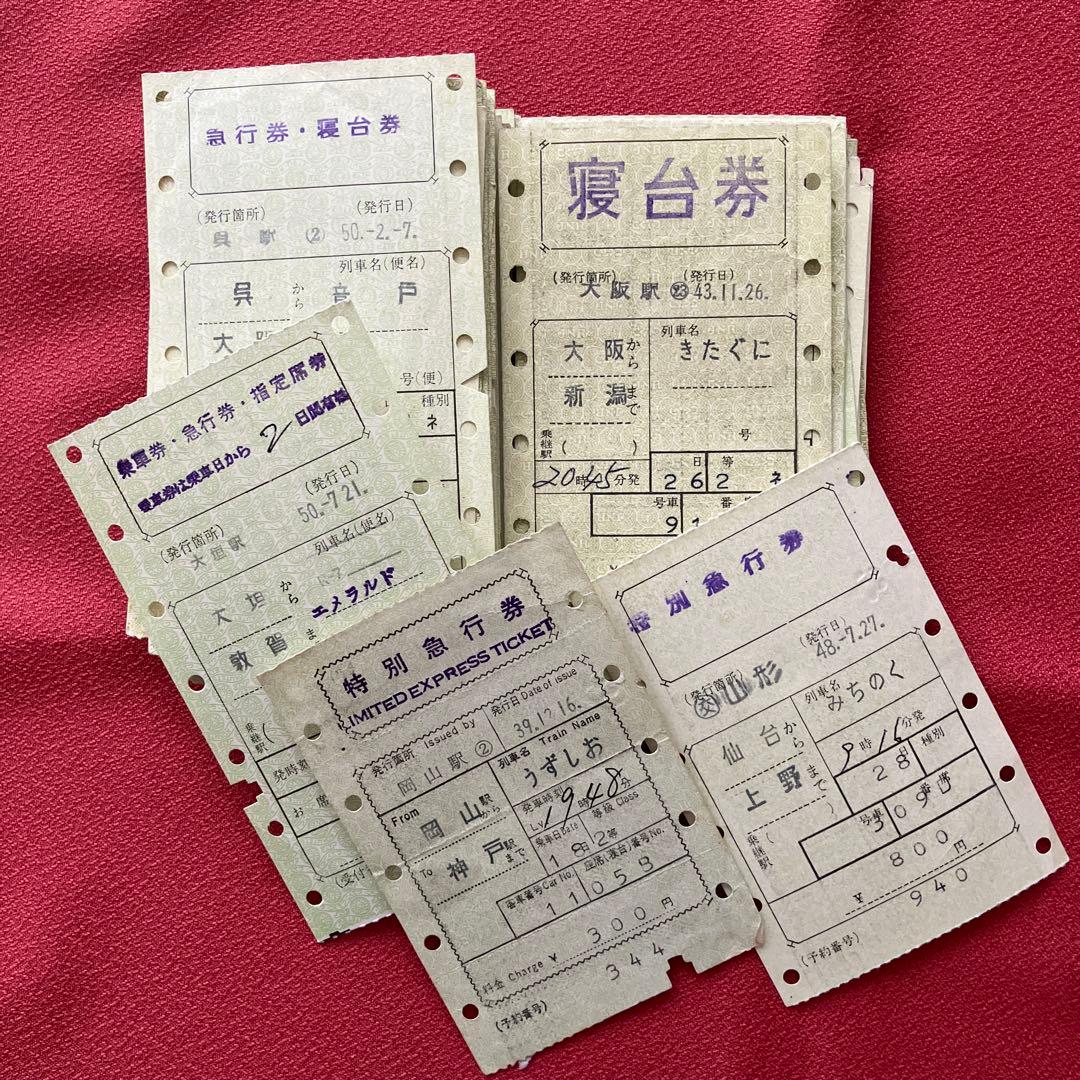 急行券・寝台券
(発行箇所) (発行日)
呉駅 (2) 50.-2.-7.
列車名(便名)
呉から 音戸
大阪
号(便)
種別
ネ
寝台券
(発行箇所) (発行日)
大阪駅 43.11.26.
列車名
大阪から きたぐに
新潟まで
乗継駅 ( ) 号
20時45分発 26日 2等 ネ
号車
91
乗車券・急行券・指定席券
乗車券は乗車日から2日間有効
(発行日)
50.-7.21.
(発行箇所)
大垣駅
列車名(便名)
大垣から
エメラルド
敦賀ま
乗継駅 (
発時刻
お席
(受付
特別急行券
IMITED EXPRESS TICKET
発行箇所 Issued by 発行日 Date of issue
岡山駅② 39.12.16.
列車名 Train Name
うずしお
From 岡山駅から
発車時刻 Lv. 19時48分
To 神戸駅まで
乗車日 Date 等級 Class
18日 2等
客車番号 Car No. 座席(寝台)番号 No.
11 05B
料金 Charge ¥ 300円
344
(予約番号)
特別急行券
(発行箇所) (発行日)
交 山形 48.-7.27.
列車名
みちのく
仙台から
9時16分発
上野まで
28日 種別
乗継駅 (
号車 番 席
¥ 800円
940
(予約番号)